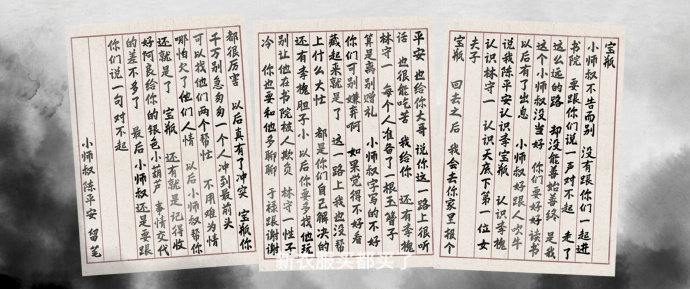 宝瓶
小师叔不告而别 没有跟你们一起进
书院 要跟你们说一声对不起 走了
这么远的路 却没能善始善终 是我
这个小师叔没当好 你们要好好读书
以后有了出息 小师叔好跟人吹牛
说我陈平安认识李宝瓶 认识李槐
认识林守一 认识天底下第一位女
夫子
宝瓶 回去之后 我会去你家里报个
平安 也给你大哥说你这一路上很听
话 也很能吃苦 我给你 还有李槐
林守一 每个人准备了一根玉簪子
算是离别赠礼 小师叔字写的不好
你们可别嫌弃啊 如果觉得不好看
藏起来就是了 这一路上我也没帮
上什么大忙 都是你们自己解决的
还有李槐胆子小 以后你要多找他玩
别让他在书院被人欺负 林守一性子
冷 你也要和他多聊聊 于禄跟谢谢
都很厉害 以后真有了冲突 宝瓶你
千万别急匆匆一个人冲到最前头
可以找他们两个帮忙 不用难为情
哪怕欠了他们人情 以后小师叔帮你
还就是了 宝瓶 还有就是记得收
好阿良给你的银色小葫芦 事情交代
的差不多了 最后 小师叔还是要跟
你们说一句 对不起
小师叔陈平安 留笔
新衣服买都买了